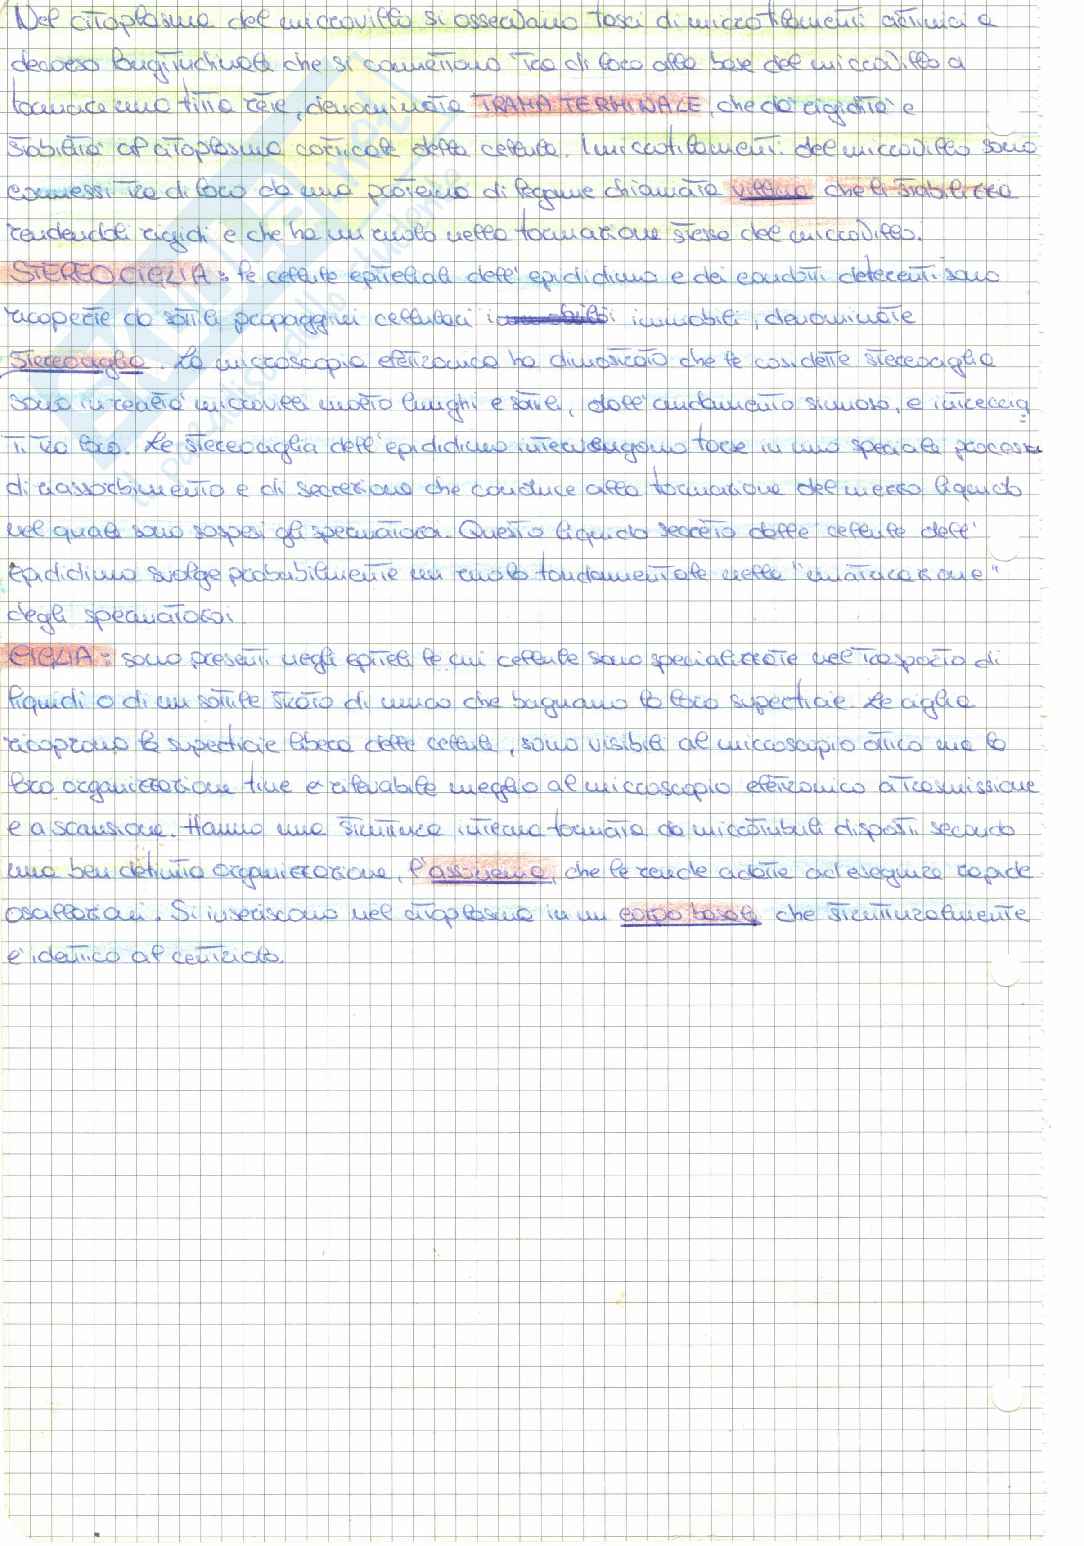 Nel citoplasma del microvillo si osservano fasci di microfilamenti actinici a
decorso longitudinale che si connettono tra di loro alla base del microvillo a
formare una fitta rete, denominata TRAMA TERMINALE, che dà rigidità e
stabilità al citoplasma corticale della cellula. I microfilamenti del microvillo sono
connessi tra di loro da una proteina di legame chiamata villina che li stabilizza
rendendoli rigidi e che ha un ruolo nella formazione stessa del microvillo.
STEREOCIGLIA: le cellule epiteliali dell'epididimo e dei condotti deferenti sono
ricoperte da sottili propaggini cellulari immobili, denominate
stereociglia. La microscopia elettronica ha dimostrato che le cosidette stereociglia
sono in realtà microvilli molto lunghi e sottili, dall'andamento sinuoso, e intreccia
ti tra loro. Le stereociglia dell'epididimo intervengono forse in uno speciale processo
di riassorbimento e di secrezione che conduce alla formazione del mezzo liquido
nel quale sono sospesi gli spermatozoi. Questo liquido secreto dalle cellule dell'
epididimo svolge probabilmente un ruolo fondamentale nella "maturazione"
degli spermatozoi.
CIGLIA: sono presenti negli epiteli le cui cellule sono specializzate nel trasporto di
liquidi o di un sottile strato di muco che bagnano la loro superficie. Le ciglia
ricoprono la superficie libera delle cellule, sono visibili al microscopio ottico ma la
loro organizzazione fine è rilevabile meglio al microscopio elettronico a trasmissione
e a scansione. Hanno una struttura interna formata da microtubuli disposti secondo
una ben definita organizzazione, l'assonema, che le rende adatte ad eseguire rapide
oscillazioni. Si inseriscono nel citoplasma in un corpo basale che strutturalmente
è identico al centriolo.